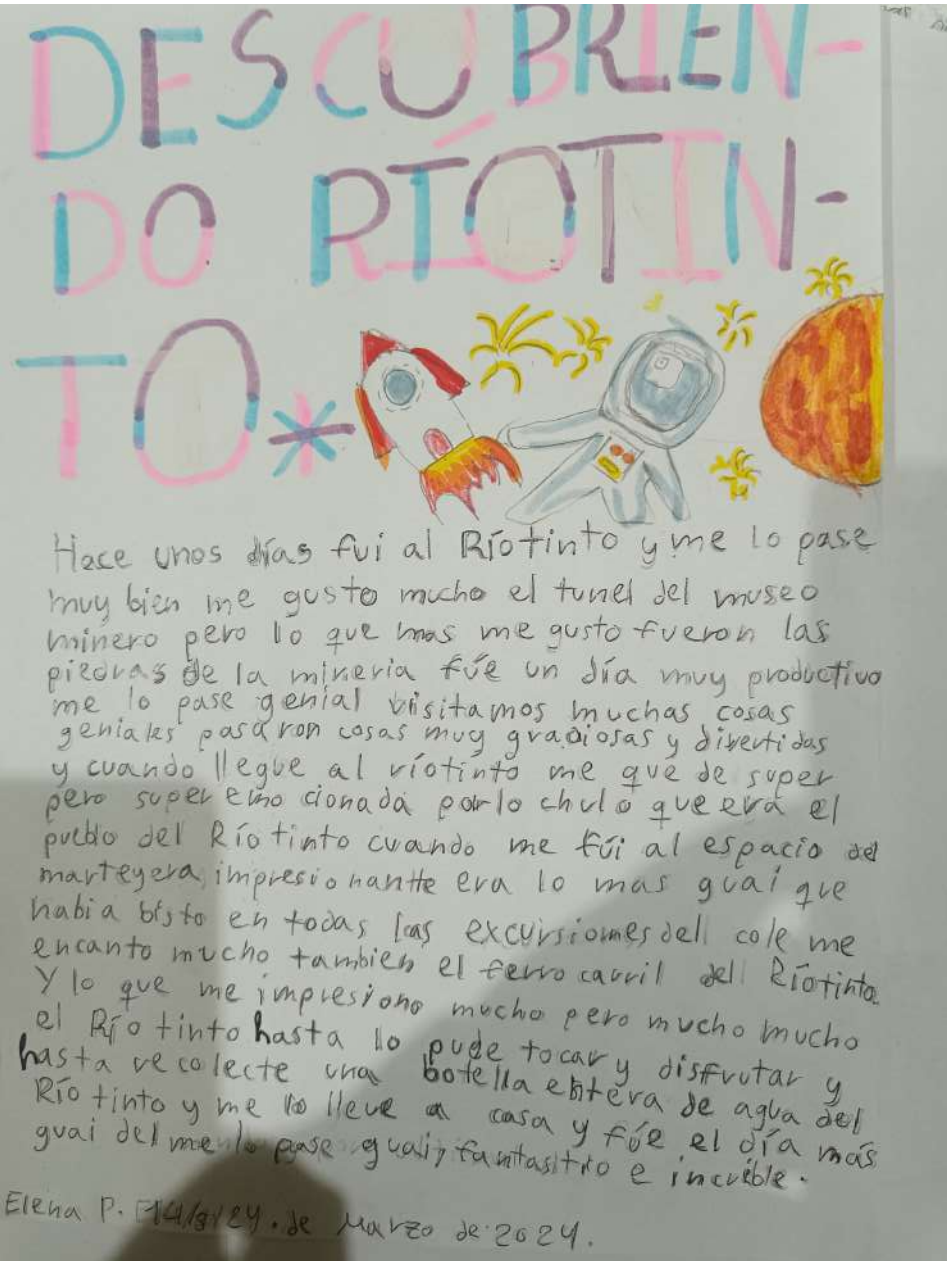 DESCUBRIEN-
DO RÍOTIN-
TO*
Hace unos días fui al Ríotinto y me lo pase
muy bien me gusto mucho el tunel del museo
minero pero lo que mas me gusto fueron las
piedras de la mineria fúe un día muy productivo
me lo pase genial visitamos muchas cosas
geniales pasaron cosas muy graciosas y divertidas
y cuando llegue al ríotinto me que de super
pero super emo cionada por lo chulo que era el
pueblo del Ríotinto cuando me fúi al espacio de
marte y era impresionante era lo mas guai que
habia bisto en todas las excursiones del cole me
encanto mucho tambien el ferro carril del Ríotinto
Y lo que me impresiono mucho pero mucho mucho
el Río tinto hasta lo pude tocar y disfrutar y
hasta recolecte una botella entera de agua del
Río tinto y me lo lleve a casa y fúe el día más
guai del me lo pase guai, e increible.
Elena P. 14/3/24. de Marzo de 2024.